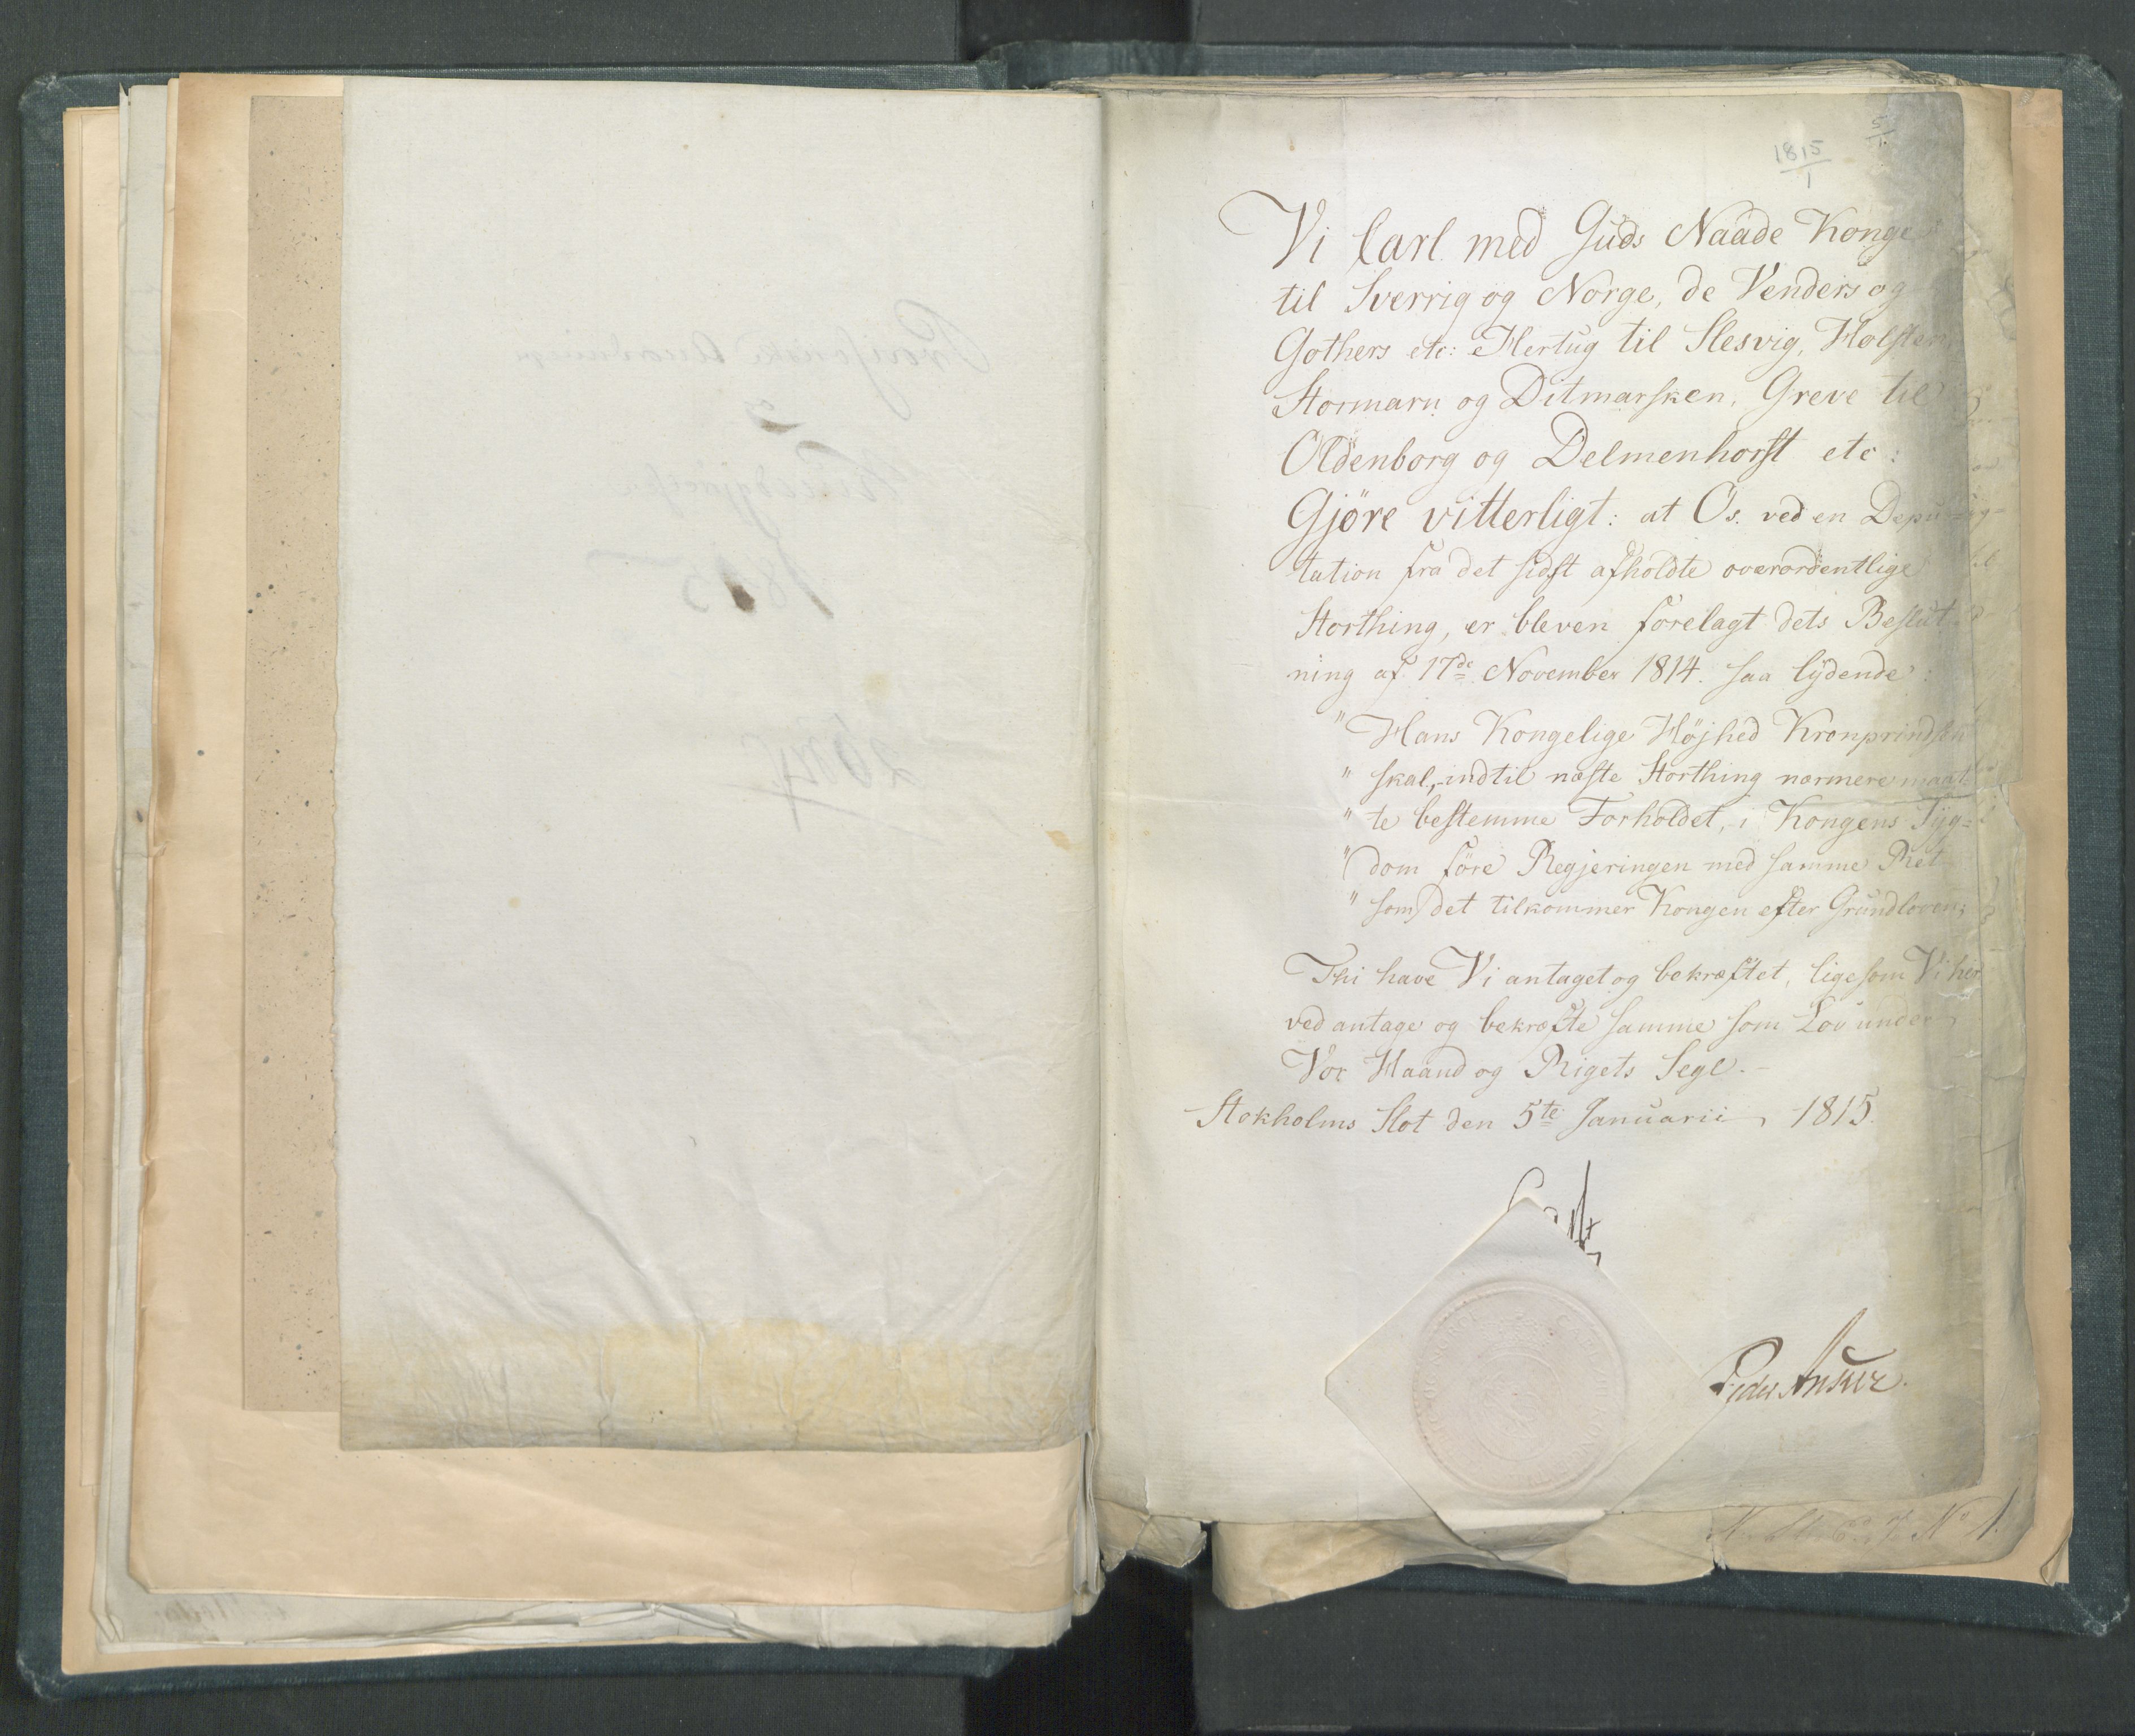 5/1
1815/1
Vi Carl med Guds Naade Konge
til Sverrig og Norge, de Venders og
Gothers etc: Hertug til Slesvig, Holsten,
Stormarn og Ditmarsken, Greve til
Oldenborg og Delmenhorst etc:
Gjöre vitterligt: at Os. ved en Depu-
tation fra det sidst afholdte overordentlige
Storthing, er bleven forelagt dets Beslut-
ning af 17de November 1814. saa lydende:
"Hans Kongelige Höjhed Kronprindsen
" skal, indtil næste Storthing nærmere maat-
" te bestemme Forholdet, i Kongens Syg=
" dom före Regjeringen med samme Ret
" som det tilkommer Kongen efter Grundloven;
Thi have Vi antaget og bekræftet, ligesom Vi her
ved antage og bekræfte samme som Lov under
Vor Haand og Rigets Segl.-
Stokholms Slot den 5te Januarii 1815.
Carl
Peder Anker.
No 1.